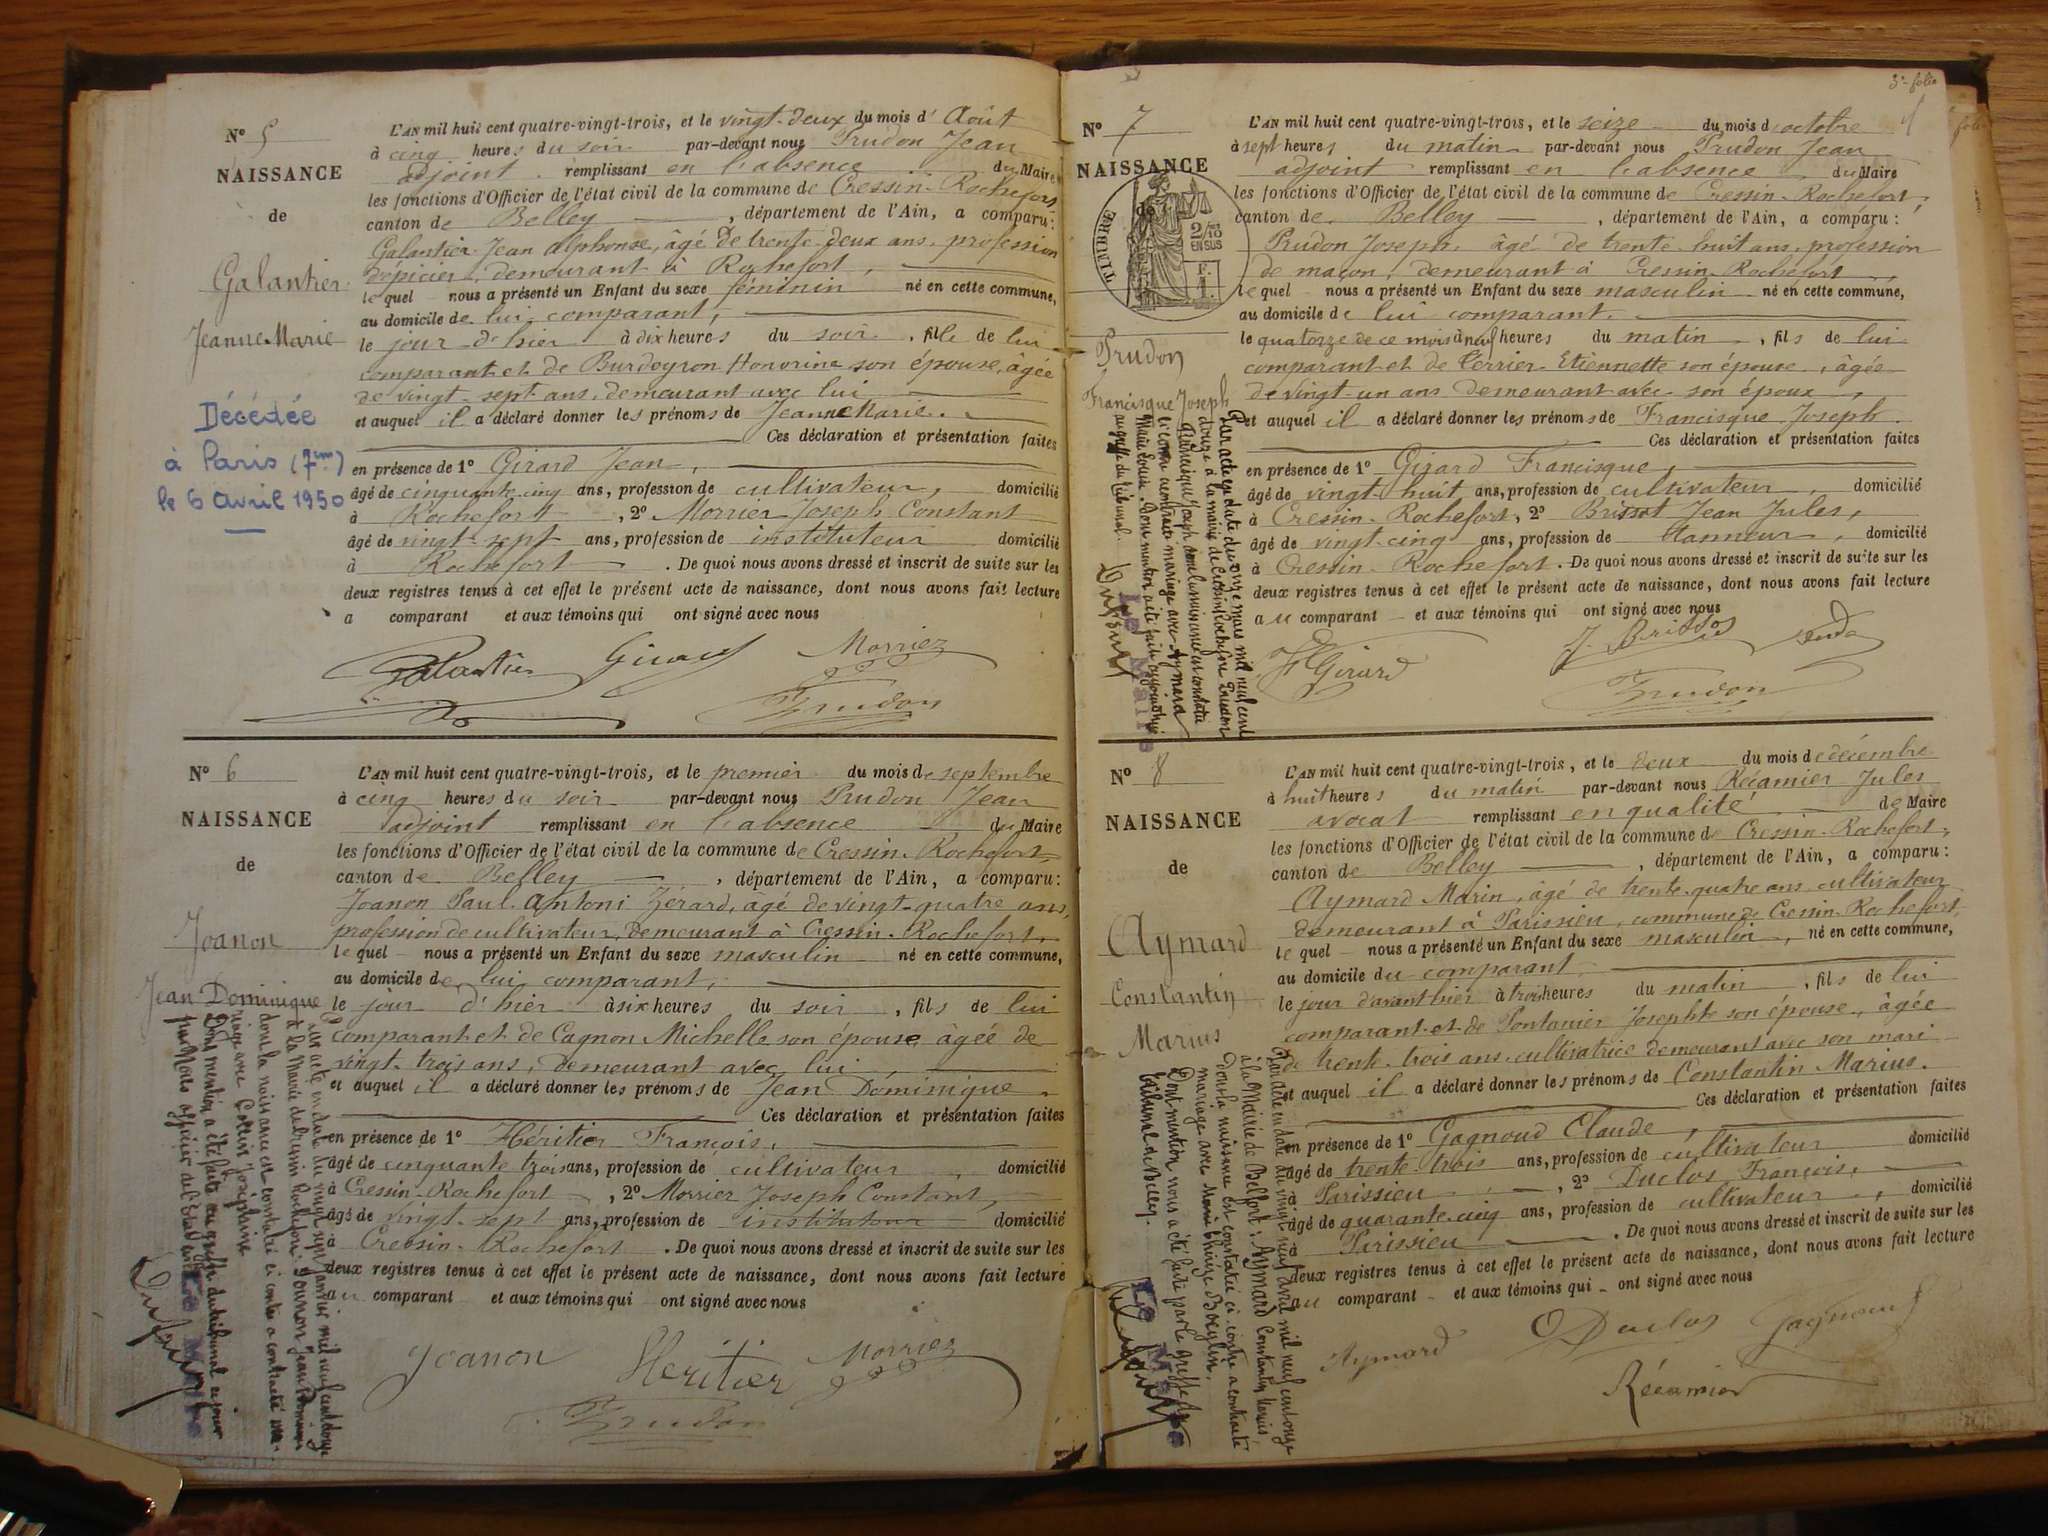 Nº 5
NAISSANCE
de
Galantier
Jeanne Marie
Décédée
à Paris (7ème)
le 6 avril 1950
L'AN mil huit cent quatre-vingt-trois, et le vingt-deux du mois d'Août
à cinq heures du soir par-devant nous Prudon Jean
adjoint remplissant en l'absence du Maire
les fonctions d'Officier de l'état civil de la commune de Cressin-Rochefort
canton de Belley, département de l'Ain, a comparu :
Galantier Jean Alphonse, âgé de trente-deux ans, profession
d'épicier, demeurant à Rochefort,
lequel nous a présenté un Enfant du sexe féminin né en cette commune,
au domicile de lui comparant,
le jour d'hier à dix heures du soir, fille de lui
comparant et de Burdeyron Honorine son épouse, âgée
de vingt-sept ans, demeurant avec lui
et auquel il a déclaré donner les prénoms de Jeanne Marie.
Ces déclaration et présentation faites
en présence de 1º Girard Jean,
âgé de cinquante cinq ans, profession de cultivateur, domicilié
à Rochefort, 2º Morrier Joseph Constant
âgé de vingt-sept ans, profession de instituteur domicilié
à Rochefort. De quoi nous avons dressé et inscrit de suite sur les
deux registres tenus à cet effet le présent acte de naissance, dont nous avons fait lecture
a comparant et aux témoins qui ont signé avec nous
Galantier Girard Morrier
Prudon
Nº 6
NAISSANCE
de
Joanon
Jean Dominique
L'AN mil huit cent quatre-vingt-trois, et le premier du mois de septembre
à cinq heures du soir par-devant nous Prudon Jean
adjoint remplissant en l'absence du Maire
les fonctions d'Officier de l'état civil de la commune de Cressin-Rochefort,
canton de Belley, département de l'Ain, a comparu :
Joanon Paul Antoni Gérard, âgé de vingt-quatre ans,
profession de cultivateur, demeurant à Cressin-Rochefort,
lequel nous a présenté un Enfant du sexe masculin né en cette commune,
au domicile de lui comparant,
le jour d'hier à six heures du soir, fils de lui
comparant et de Cagnon Michelle son épouse âgée de
vingt-trois ans, demeurant avec lui
et auquel il a déclaré donner les prénoms de Jean Dominique.
Ces déclaration et présentation faites
en présence de 1º Héritier François,
âgé de cinquante trois ans, profession de cultivateur, domicilié
à Cressin-Rochefort, 2º Morrier Joseph Constant,
âgé de vingt-sept ans, profession de instituteur domicilié
à Cressin-Rochefort. De quoi nous avons dressé et inscrit de suite sur les
deux registres tenus à cet effet le présent acte de naissance, dont nous avons fait lecture
au comparant et aux témoins qui ont signé avec nous
Joanon Heritier Morrier
Prudon
Par acte en date du vingt sept janvier mil neuf cent douze
à la Mairie de Cressin Rochefort Joanon Jean Dominique
dont la naissance est constatée ci contre a contracté ma-
riage avec Joséphine
Dont mention a été faite au greffe du tribunal ce jour
par Nous officier de l'état civil
3e folio
Nº 7
NAISSANCE
de
TIMBRE
2/10
EN SUS
F.
1.
Prudon
Francisque Joseph
L'AN mil huit cent quatre-vingt-trois, et le seize du mois d'octobre
à sept heures du matin par-devant nous Prudon Jean
adjoint remplissant en l'absence du Maire
les fonctions d'Officier de l'état civil de la commune de Cressin-Rochefort,
canton de Belley, département de l'Ain, a comparu :
Prudon Joseph, âgé de trente-huit ans, profession
de maçon, demeurant à Cressin-Rochefort,
lequel nous a présenté un Enfant du sexe masculin né en cette commune,
au domicile de lui comparant,
le quatorze de ce mois à neuf heures du matin, fils de lui
comparant et de Terrier Etiennette son épouse, âgée
de vingt-un ans demeurant avec son époux,
et auquel il a déclaré donner les prénoms de Francisque Joseph.
Ces déclaration et présentation faites
en présence de 1º Girard Francisque,
âgé de vingt-huit ans, profession de cultivateur, domicilié
à Cressin-Rochefort, 2º Brissot Jean Jules,
âgé de vingt-cinq ans, profession de tanneur, domicilié
à Cressin-Rochefort. De quoi nous avons dressé et inscrit de suite sur les
deux registres tenus à cet effet le présent acte de naissance, dont nous avons fait lecture
au comparant et aux témoins qui ont signé avec nous
F Girard J. Brissot
Prudon
Par acte en date du onze mars mil neuf cent
douze à la mairie de Cressin Rochefort Prudon
Francisque Joseph dont la naissance est constatée
ci contre a contracté mariage avec Aymard
Marie Louise. Dont mention a été faite aujourd'hui
au greffe du tribunal.
Le Maire
Nº 8
NAISSANCE
de
Aymard
Constantin
Marius
L'AN mil huit cent quatre-vingt-trois, et le deux du mois de décembre
à huit heures du matin par-devant nous Récamier Jules
avocat remplissant en qualité de Maire
les fonctions d'Officier de l'état civil de la commune de Cressin-Rochefort,
canton de Belley, département de l'Ain, a comparu :
Aymard Marin, âgé de trente-quatre ans cultivateur
demeurant à Parissieu, commune de Cressin-Rochefort,
lequel nous a présenté un Enfant du sexe masculin, né en cette commune,
au domicile du comparant,
le jour d'avant hier à trois heures du matin, fils de lui
comparant et de Pontanier Josephte son épouse, âgée
de trente-trois ans cultivatrice demeurant avec son mari
et auquel il a déclaré donner les prénoms de Constantin Marius.
Ces déclaration et présentation faites
en présence de 1º Gagnoud Claude,
âgé de trente-trois ans, profession de cultivateur domicilié
à Parissieu, 2º Duclos François,
âgé de quarante-cinq ans, profession de cultivateur, domicilié
à Parissieu. De quoi nous avons dressé et inscrit de suite sur les
deux registres tenus à cet effet le présent acte de naissance, dont nous avons fait lecture
au comparant et aux témoins qui ont signé avec nous
Aymard Duclos Gagnoud
Récamier
Par acte en date du vingt neuf avril mil neuf cent onze
à la Mairie de Belfort, Aymard Constantin Marius
dont la naissance est constatée ci contre a contracté
mariage avec Marie Thérèse Boeglin.
Dont mention nous a été faite par le greffe du
tribunal de Belley.
Le Maire